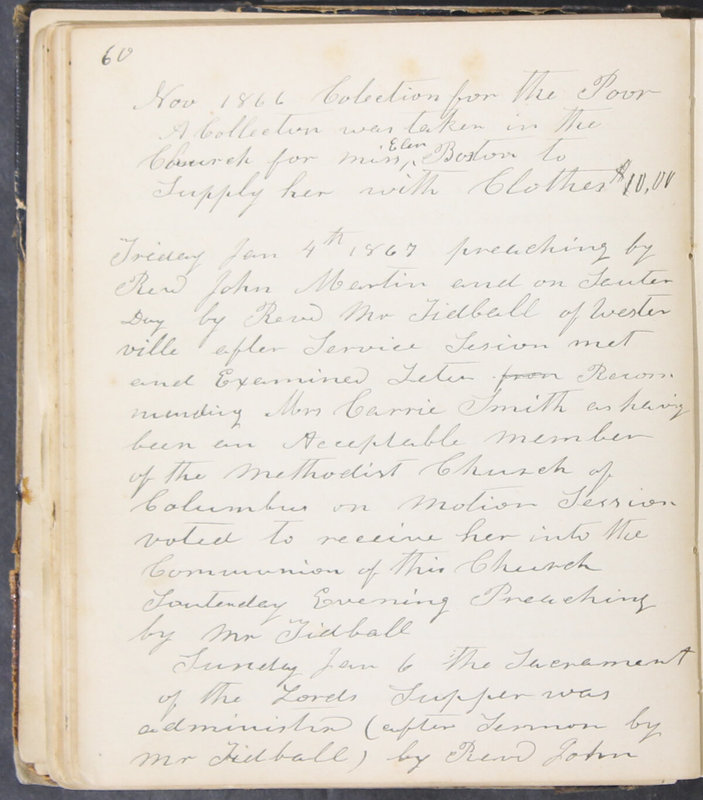 60
Nov 1866 Colection for the Poor
A Collection was taken in the
Church for miss Elen Boston to
Supply her with Clothes $10,00
Friday Jan 4th 1867 preaching by
Revd John Martin and on Sauter
Day by Revd Mr Tidball of Wester
ville after Service Sesion met
and Examined Leter from Recom
mending Mrs Carrie Smith as having
been an Acceptable member
of the Methodist Church of
Columbus on motion Session
voted to receive her into the
Communion of this Church
Sauterday Evening Preaching
by Mr Tidball
Sunday Jan 6 the Sacrament
of the Lords Supper was
administrd (after Sermon by
Mr Tidball) by Revd John